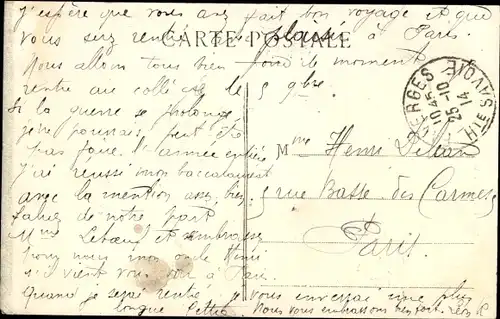 j'espère que vous avez fait bon voyage et que
vous serez rentré plaisir à Paris.
CARTE POSTALE
Nous allons tous bien pour le moment
rentre au collège le 5 9bre
Si la guerre se prolonge
je ne pourrais peut être
pas faire l'année entière
j'ai réussi mon baccalauréat
avec la mention assez bien
de notre part
Mme Leboeuf et embrassez
pour nous mon oncle Henri
s'il vient vous voir à Paris
Quand je serai rentré, je vous enverrai une plus
longue lettre. Nous vous embrassons bien fort.
CERGES
10 45
25-10
14
HTE SAVOIE
Mme Henri
5 rue Basse des Carmes
Paris